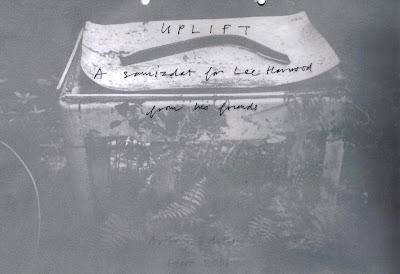 UPLIFT
A samizdat for Lee Harwood
from his friends